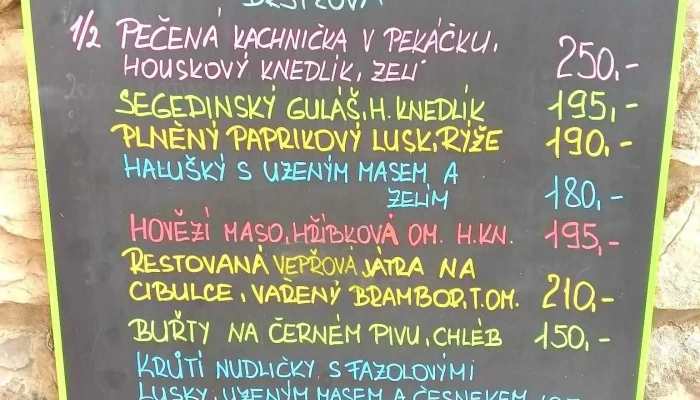 ½ PEČENÁ KACHNIČKA V PEKÁČKU,
HOUSKOVÝ KNEDLÍK, ZELÍ 250,-
SEGEDINSKÝ GULÁŠ, H. KNEDLÍK 195,-
PLNĚNÝ PAPRIKOVÝ LUSK, RÝŽE 190,-
HALUŠKY S UZENÝM MASEM A
ZELÍM 180,-
HOVĚZÍ MASO, HŘÍBKOVÁ OM. H.KN. 195,-
RESTOVANÁ VEPŘOVÁ JÁTRA NA
CIBULCE, VAŘENÝ BRAMBOR, T.OM. 210,-
BUŘTY NA ČERNÉM PIVU, CHLÉB 150,-
KRŮTÍ NUDLIČKY S FAZOLOVÝMI
LUSKY, UZENÝM MASEM A ČESNEKEM